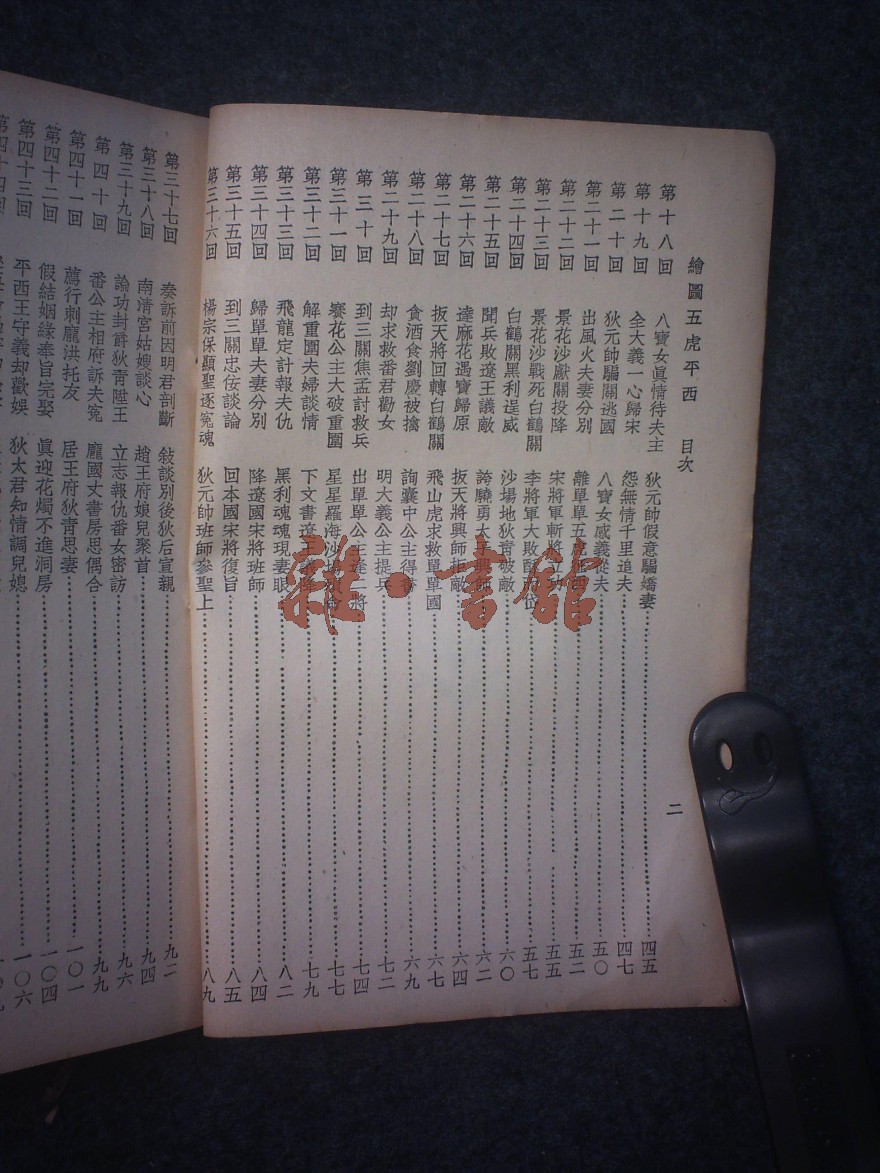 繪圖五虎平西 目次 二
第十八回 八寶女眞情待夫主 狄元帥假意騙嬌妻 四五
第十九回 全大義一心歸宋 怨無情千里追夫 四七
第二十回 狄元帥騙關逃國 八寶女感義從夫 五〇
第二十一回 出風火夫妻分別 離單單五虎征西 五二
第二十二回 景花沙獻關投降 宋將軍斬將立功 五五
第二十三回 景花沙戰死白鶴關 李將軍大敗 五七
第二十四回 白鶴關黑利逞威 沙場地狄青破敵 六〇
第二十五回 聞兵敗遼王議敵 誇驍勇太子興師 六二
第二十六回 達麻花遇寶歸原 扳天將興師拒敵 六四
第二十七回 扳天將回轉白鶴關 飛山虎求救單單國 六七
第二十八回 貪酒食劉慶被擒 詢囊中公主得書 六九
第二十九回 却求救番君勸女 明大義公主提兵 七二
第三十回 到三關焦孟討救兵 出單單公主逢二將 七四
第三十一回 賽花公主大破重圍 星星羅海沙場 七七
第三十二回 解重圍夫婦談情 下文書遼 七九
第三十三回 飛龍定計報夫仇 黑利魂魂現妻眼 八二
第三十四回 歸單單夫妻分別 降遼國宋將班師 八四
第三十五回 到三關忠佞談論 回本國宋將復旨 八五
第三十六回 楊宗保顯聖逐冤魂 狄元帥班師參聖上 八九
第三十七回 奏訴前因明君剖斷 敍談別後狄后宣親 九二
第三十八回 南清宮姑嫂談心 趙王府娘兒聚首 九四
第三十九回 論功封爵狄青陞王 立志報仇番女密訪 九六
第四十回 番公主相府訴夫冤 龐國丈書房思偶合 九九
第四十一回 薦行刺龐洪托友 居王府狄青思妻 一〇一
第四十二回 假結姻緣奉旨完娶 眞迎花燭不進洞房 一〇四
第四十三回 平西王守義却歡娛 狄太君知情調兒媳 一〇六
第四十四回
雜·書館